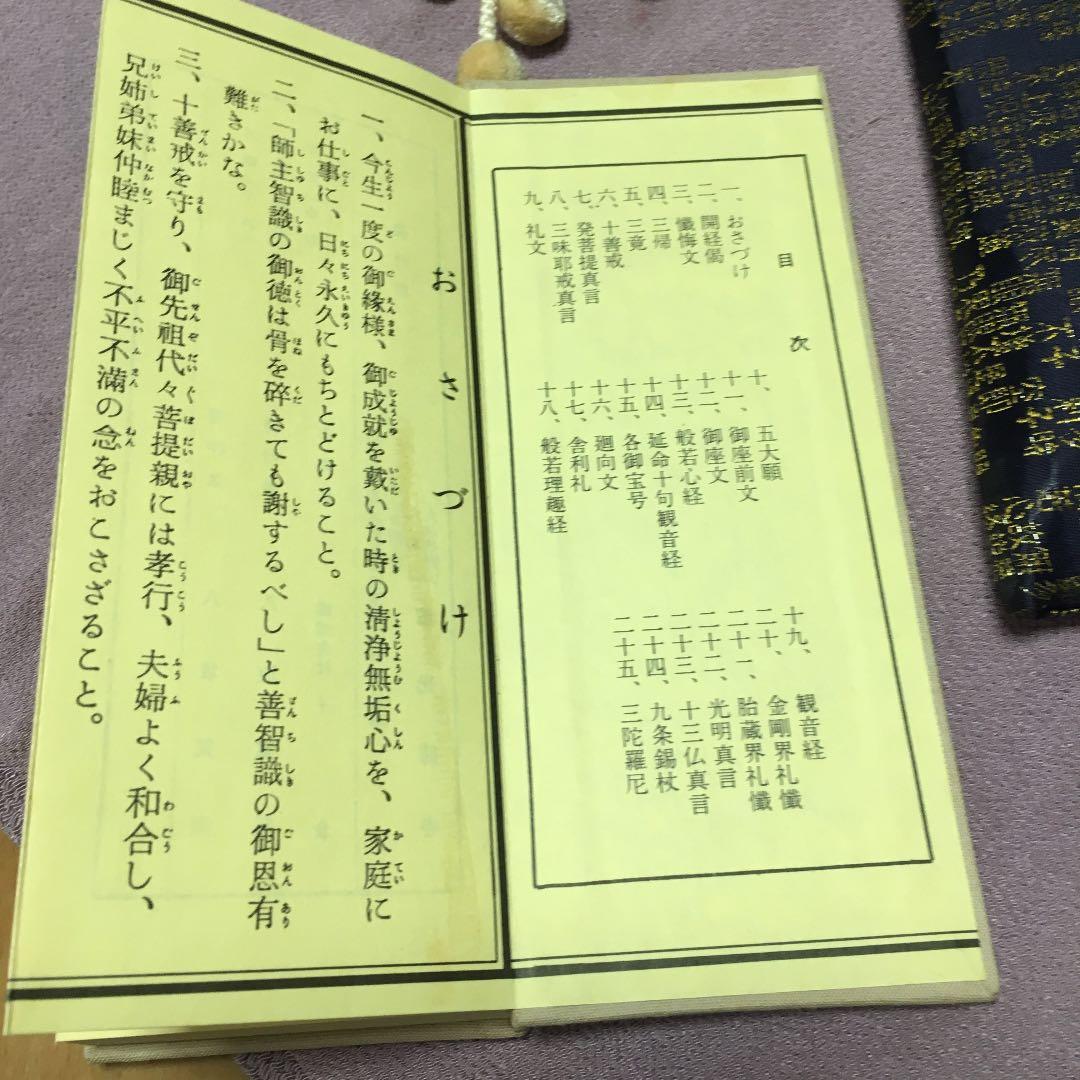 目次
一、おさづけ
二、開経偈
三、懺悔文
四、三帰
五、三竟
六、十善戒
七、発菩提真言
八、三昧耶戒真言
九、礼文
十、五大願
十一、御座前文
十二、御座文
十三、般若心経
十四、延命十句観音経
十五、各御宝号
十六、廻向文
十七、舎利礼
十八、般若理趣経
十九、観音経
二十、金剛界礼懺
二十一、胎蔵界礼懺
二十二、光明真言
二十三、十三仏真言
二十四、九条錫杖
二十五、三陀羅尼
おさづけ
一、今生一度の御縁様、御成就を戴いた時の清浄無垢心を、家庭に
お仕事に、日々永久にもちとどけること。
二、「師主智識の御徳は骨を砕きても謝するべし」と善智識の御恩有
難きかな。
三、十善戒を守り、御先祖代々菩提親には孝行、夫婦よく和合し、
兄姉弟妹仲睦まじく不平不満の念をおこさざること。